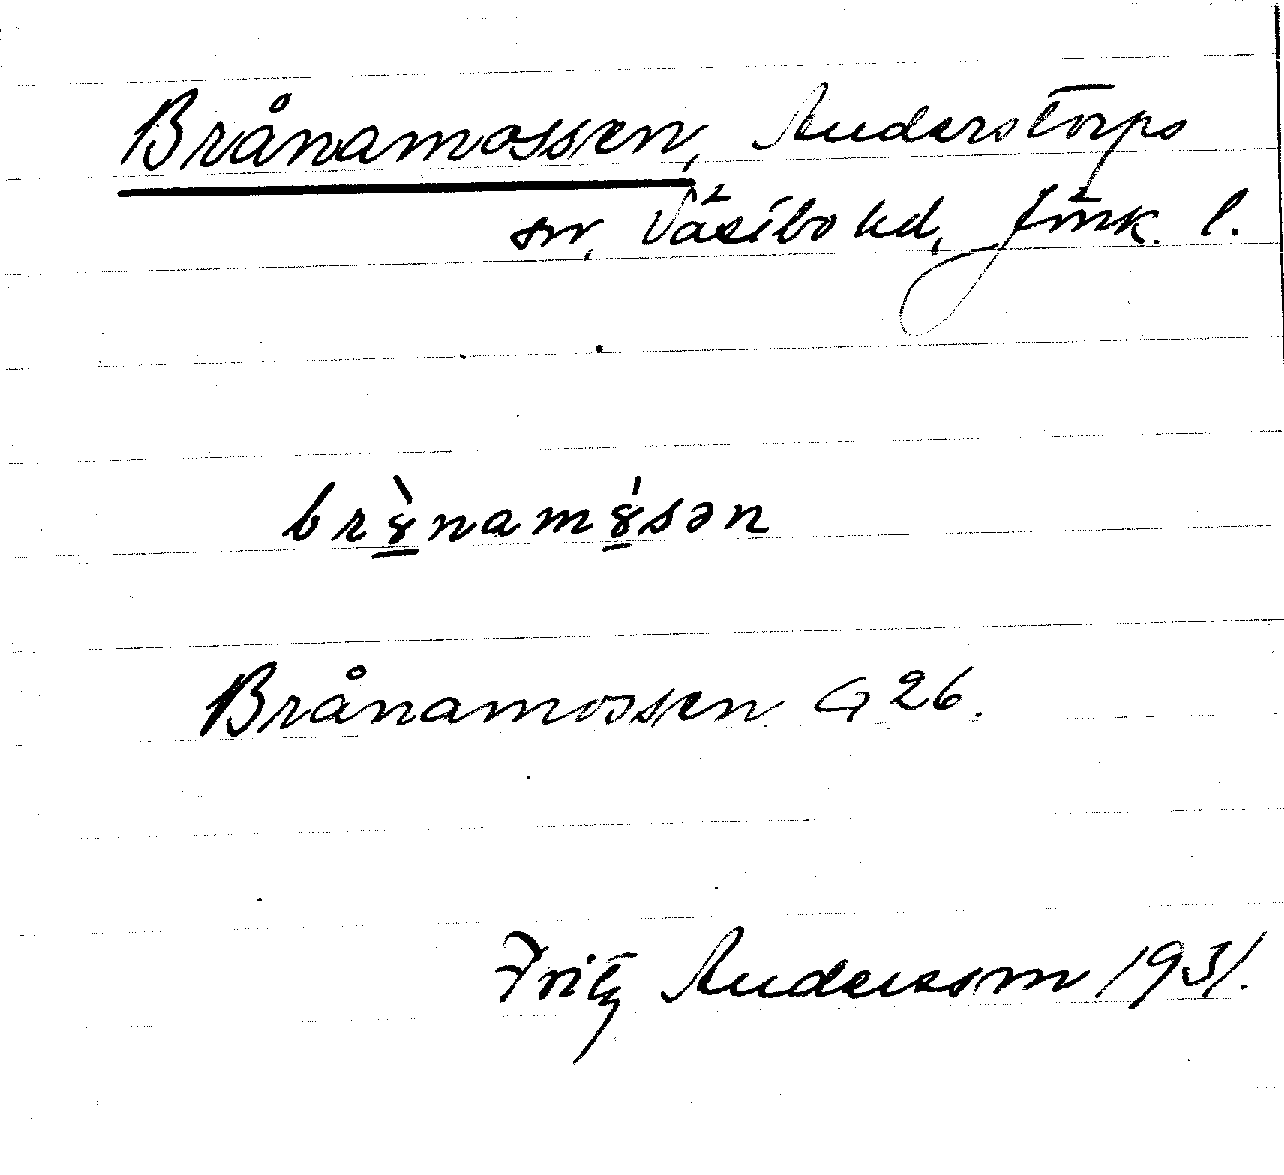 Brånamossen, Anderstorps
sn, Västbo hd, Jönk. l.
br8̀namǿsən
Brånamossen G 26.
Fritz Andersson 1931.